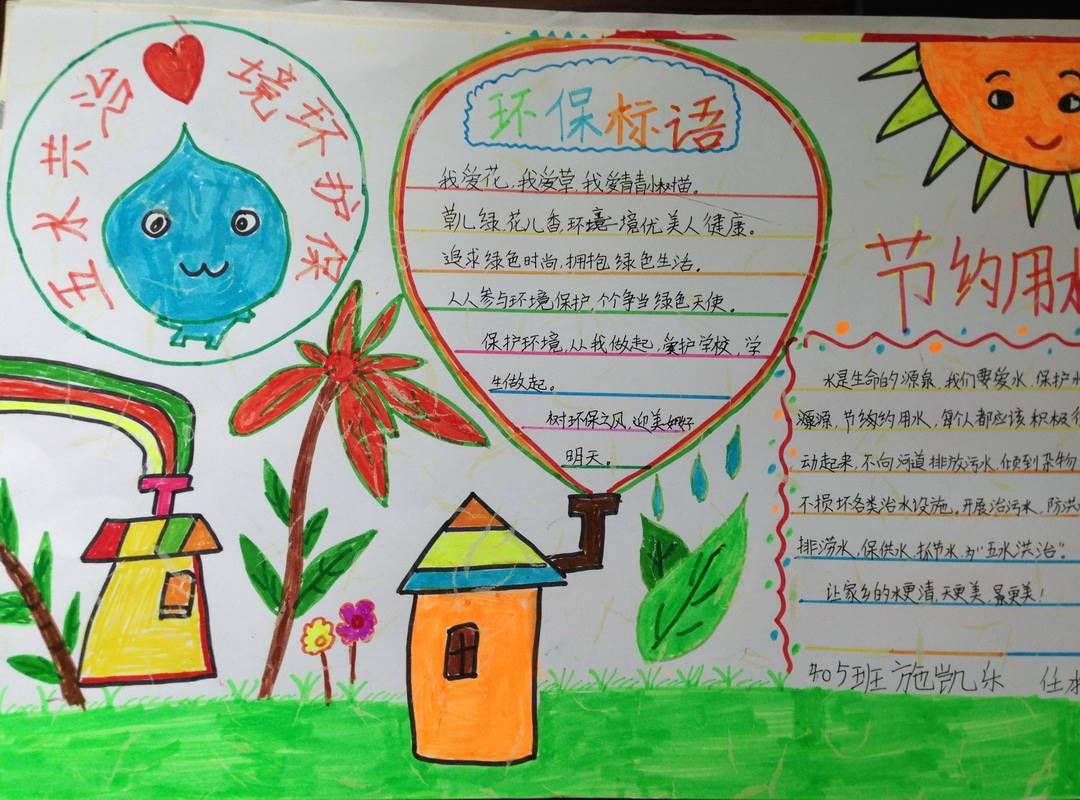 五水共治
环境保护
环保标语
我爱花,我爱草,我爱青青小树苗。
草儿绿,花儿香,环境优美人健康。
追求绿色时尚,拥抱绿色生活。
人人参与环境保护,个个争当绿色天使。
保护环境,从我做起,爱护学校,学
生做起。
树环保之风,迎美好
明天。
节约用水
水是生命的源泉,我们要爱水,保护水
源,节约用水,每个人都应该积极行
动起来,不向河道排放污水、倾到杂物
不损坏各类治水设施。开展治污水、防洪
排涝水、保供水、抓节水,为"五水洪治"。
让家乡的水更清,天更美,景更美!
405班 施凯乐